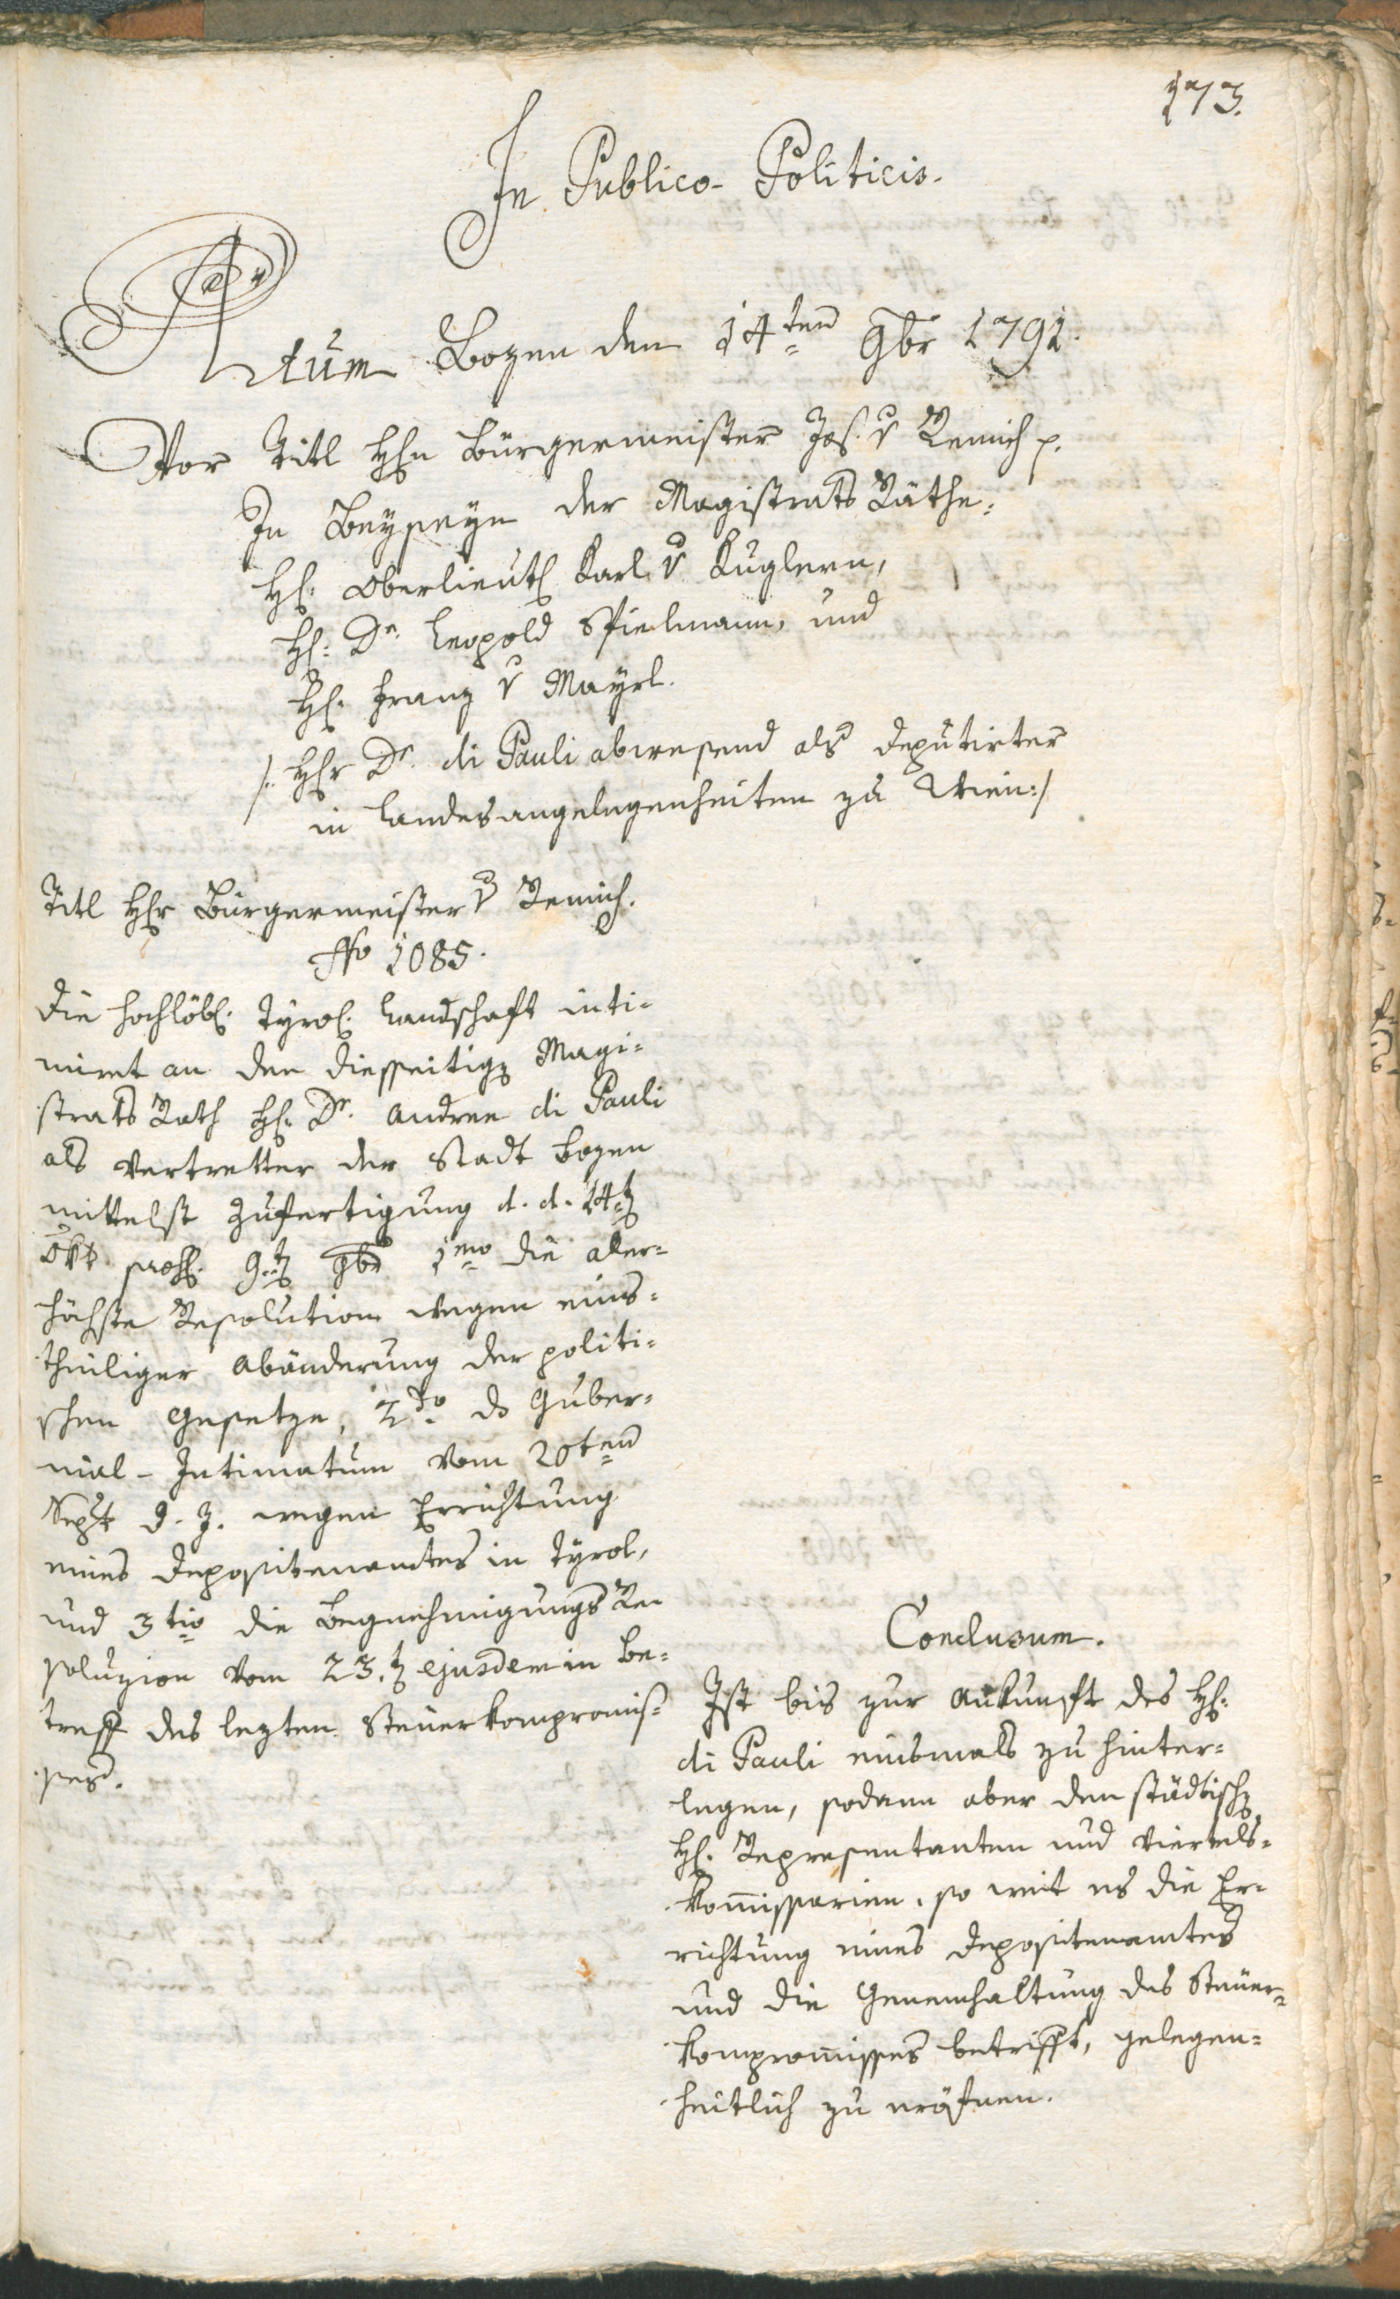 173.
In Publico-Politicis.
Actum Bozen den 14ten 9br 1791.
Vor Titl Hln Bürgermeister Jos. v Remich p.
In Beyseyn der Magistrats Räthe:
Hl: Oberlieut Karl v Kuglern,
Hl: Dr. Leopold Spielmann, und
Hl: Franz v Mayrl.
/: Hr Dr. di Pauli abwesend als deputirter
in Landesangelegenheiten zu Wien:/
Titl Hr Bürgermeister v Remich.
No 1085.
Die hochlöbl. tyrol. Landschaft inti-
mirt an den diesseitig Magi-
strats Rath Hl: Dr. Andree di Pauli
als Vertretter der Stadt Bozen
mittelst Zufertigung d. d. 14t
Okt. praes. 9.t 9br 1mo die aller-
höchste Resolution wegen eins-
theiliger Abänderung der politi-
schen Gesetze, 2do ds Guber-
nial-Intimatum vom 20ten
Sept d. J. wegen Errichtung
eines Depositenamtes in Tyrol,
und 3tio die Begnehmigungs Re-
soluzion vom 23.t ejusdem in Be-
treff des lezten Steuerkompromis-
ses.
Conclusum.
Ist bis zur Ankunft des Hl:
di Pauli einsmals zu hinter-
legen, sodann aber den städtisch
Hl. Representanten und Viertels-
kom̅issarien, so weit es die Er-
richtung eines Depositenamtes
und die Genemhaltung des Steuer-
kompromisses betrifft, gelegen-
heitlich zu eröfnen.